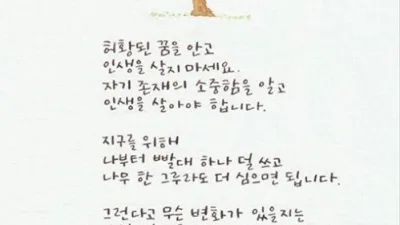 허황된 꿈을 안고
인생을 살지 마세요.
자기 존재의 소중함을 알고
인생을 살아야 합니다.
지구를 위해
나부터 빨대 하나 덜 쓰고
나무 한 그루라도 더 심으면 됩니다.
그런다고 무슨 변화가 있을지는